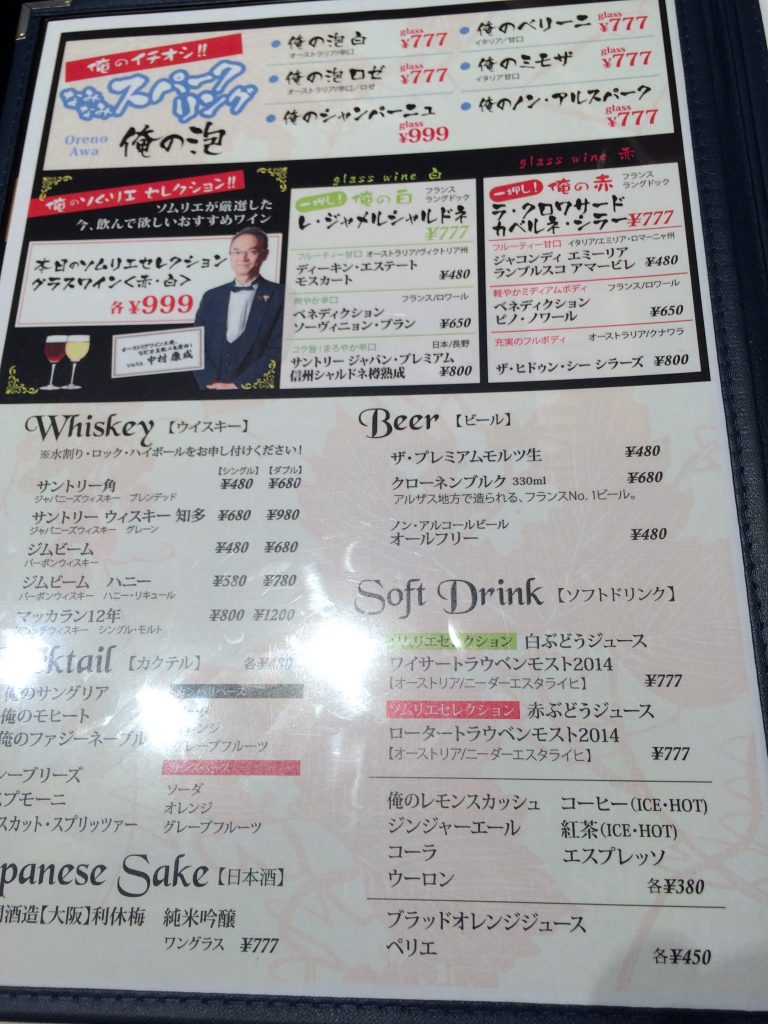 俺のイチオシ!!
なみなみスパークリング
Oreno Awa 俺の泡
俺の泡 白 glass ¥777
オーストラリア/辛口
俺の泡 ロゼ glass ¥777
オーストラリア/辛口/ロゼ
俺のシャンパーニュ glass ¥999
俺のベリーニ glass ¥777
イタリア/甘口
俺のミモザ glass ¥777
イタリア甘口
俺のノン・アルスパーク glass ¥777
俺のソムリエ セレクション!!
ソムリエが厳選した
今、飲んで欲しいおすすめワイン
本日のソムリエセレクション
グラスワイン<赤・白>
各 ¥999
オーストリアワイン大使、
ソムリエ 中村 康成
glass wine 白
一押し! 俺の白 フランス ラングドック
レ・ジャメルシャルドネ
¥777
フルーティー甘口 オーストラリア/ヴィクトリア州
ディーキン・エステート
モスカート ¥480
爽やか辛口 フランス/ロワール
ベネディクション
ソーヴィニョン・ブラン ¥650
コク旨!まろやか辛口 日本/長野
サントリー ジャパン・プレミアム
信州シャルドネ樽熟成 ¥800
glass wine 赤
一押し! 俺の赤 フランス ラングドック
ラ・クロワサード
カベルネ・シラー ¥777
フルーティー甘口 イタリア/エミリア・ロマーニャ州
ジャコンディ エミーリア
ランブルスコ アマービレ ¥480
軽やかミディアムボディ フランス/ロワール
ベネディクション
ピノ・ノワール ¥650
充実のフルボディ オーストラリア/クナワラ
ザ・ヒドゥン・シー シラーズ ¥800
Whiskey【ウイスキー】
※水割り・ロック・ハイボールをお申し付けください!
【シングル】【ダブル】
サントリー角 ¥480 ¥680
ジャパニーズウィスキー ブレンデッド
サントリー ウィスキー 知多 ¥680 ¥980
ジャパニーズウィスキー グレーン
ジムビーム ¥480 ¥680
バーボンウィスキー
ジムビーム ハニー ¥580 ¥780
バーボンウィスキー ハニー・リキュール
マッカラン12年 ¥800 ¥1200
スコッチウィスキー シングル・モルト
ktail【カクテル】 各¥480
俺のサングリア
俺のモヒート
俺のファジーネーブル
ーブリーズ
プモーニ
スカット・スプリッツァー
グレープフルーツ
ソーダ
オレンジ
グレープフルーツ
panese Sake【日本酒】
酒造【大阪】利休梅 純米吟醸
ワングラス ¥777
Beer【ビール】
ザ・プレミアムモルツ生 ¥480
クローネンブルク 330ml ¥680
アルザス地方で造られる、フランスNo.1ビール。
ノン・アルコールビール
オールフリー ¥480
Soft Drink【ソフトドリンク】
ソムリエセレクション 白ぶどうジュース
ワイサートラウベンモスト2014
【オーストリア/ニーダーエスタライヒ】 ¥777
ソムリエセレクション 赤ぶどうジュース
ロータートラウベンモスト2014
【オーストリア/ニーダーエスタライヒ】 ¥777
俺のレモンスカッシュ コーヒー(ICE・HOT)
ジンジャーエール 紅茶(ICE・HOT)
コーラ エスプレッソ
ウーロン 各¥380
ブラッドオレンジジュース
ペリエ 各¥450